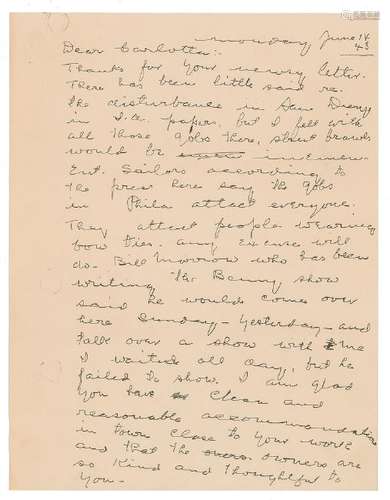 Monday June 14
43
Dear Carlotta:
Thanks for your newsy letter.
There has been little said re.
the disturbance in San Diego
in the papers, but I felt with
all those gobs there, street brawls
would be
Ent. Sailors according to
the press here say the gobs
in Phila attack everyone.
They attack people wearing
bow ties. Any excuse will
do. Bill Morrow who has been
writing the Benny show
said he would come over
here Sunday - yesterday - and
talk over a show with me
I waited all day, but he
failed to show. I am glad
you have clean and
reasonable accommodations
in town close to your work
and that the owners are
so kind and thoughtful to
you -